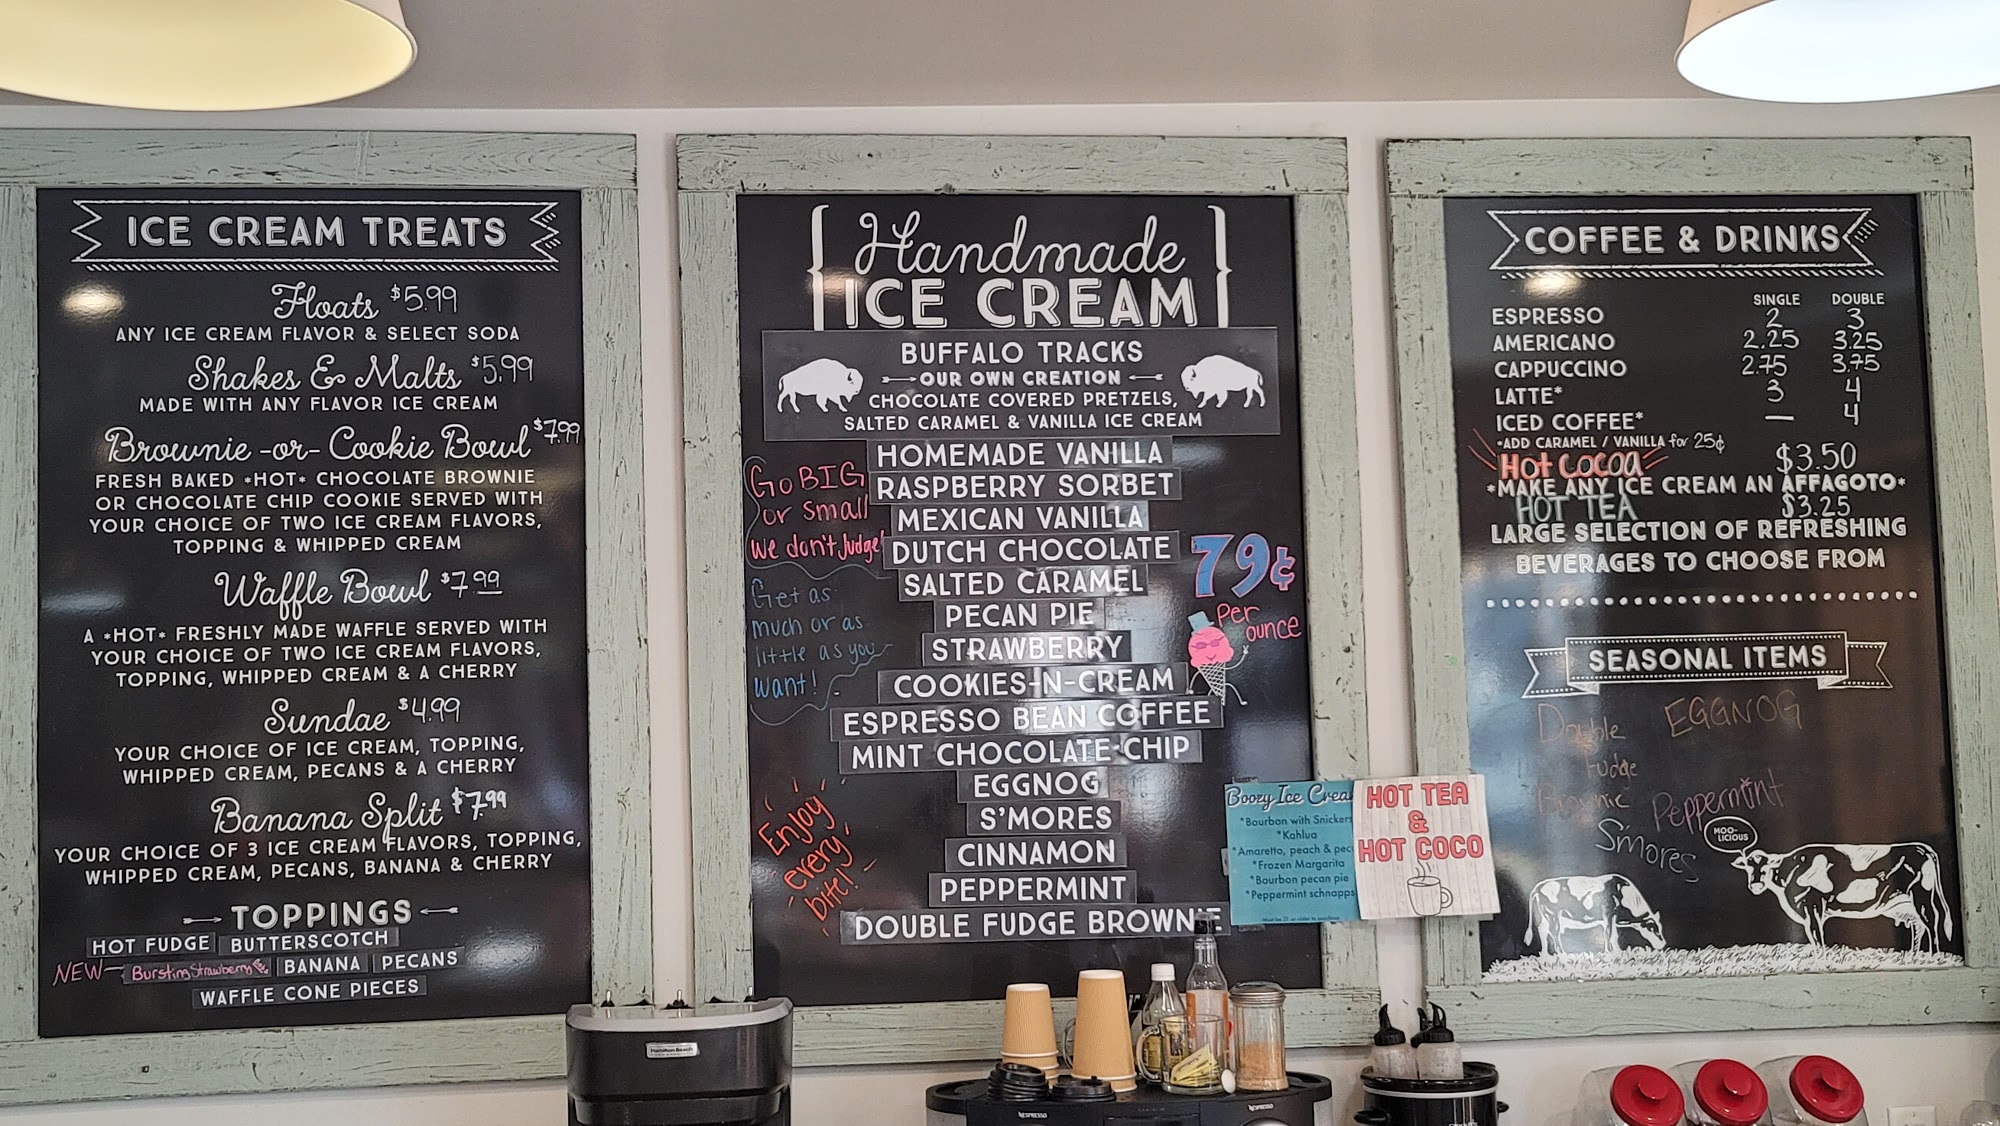 ICE CREAM TREATS
Floats $5.99
ANY ICE CREAM FLAVOR & SELECT SODA
Shakes & Malts $5.99
MADE WITH ANY FLAVOR ICE CREAM
Brownie -or- Cookie Bowl $7.99
FRESH BAKED *HOT* CHOCOLATE BROWNIE
OR CHOCOLATE CHIP COOKIE SERVED WITH
YOUR CHOICE OF TWO ICE CREAM FLAVORS,
TOPPING & WHIPPED CREAM
Waffle Bowl $7.99
A *HOT* FRESHLY MADE WAFFLE SERVED WITH
YOUR CHOICE OF TWO ICE CREAM FLAVORS,
TOPPING, WHIPPED CREAM & A CHERRY
Sundae $4.99
YOUR CHOICE OF ICE CREAM, TOPPING,
WHIPPED CREAM, PECANS & A CHERRY
Banana Split $7.99
YOUR CHOICE OF 3 ICE CREAM FLAVORS, TOPPING,
WHIPPED CREAM, PECANS, BANANA & CHERRY
TOPPINGS
HOT FUDGE BUTTERSCOTCH
NEW- Bursting Strawberry BANANA PECANS
WAFFLE CONE PIECES
Handmade
ICE CREAM
BUFFALO TRACKS
OUR OWN CREATION
CHOCOLATE COVERED PRETZELS,
SALTED CARAMEL & VANILLA ICE CREAM
HOMEMADE VANILLA
RASPBERRY SORBET
MEXICAN VANILLA
DUTCH CHOCOLATE
SALTED CARAMEL
PECAN PIE
STRAWBERRY
COOKIES-N-CREAM
ESPRESSO BEAN COFFEE
MINT CHOCOLATE CHIP
EGGNOG
S'MORES
CINNAMON
PEPPERMINT
DOUBLE FUDGE BROWNIE
Go BIG
or small
we don't judge!
Get as
much or as
little as you
want!
Enjoy
every
bite!
79¢
Per
ounce
Boozy Ice Crea
*Bourbon with Snickers
*Kahlua
*Amaretto, peach & pec
*Frozen Margarita
*Bourbon pecan pie
*Peppermint schnapps
HOT TEA
&
HOT COCO
COFFEE & DRINKS
SINGLE DOUBLE
ESPRESSO 2 3
AMERICANO 2.25 3.25
CAPPUCCINO 2.75 3.75
LATTE* 3 4
ICED COFFEE* — 4
*ADD CARAMEL / VANILLA for 25¢
Hot Cocoa $3.50
*MAKE ANY ICE CREAM AN AFFAGOTO*
HOT TEA $3.25
LARGE SELECTION OF REFRESHING
BEVERAGES TO CHOOSE FROM
SEASONAL ITEMS
Double
Fudge
EGGNOG
Peppermint
S'mores
MOO-
LICIOUS
Hamilton Beach
NESPRESSO
NESPRESSO